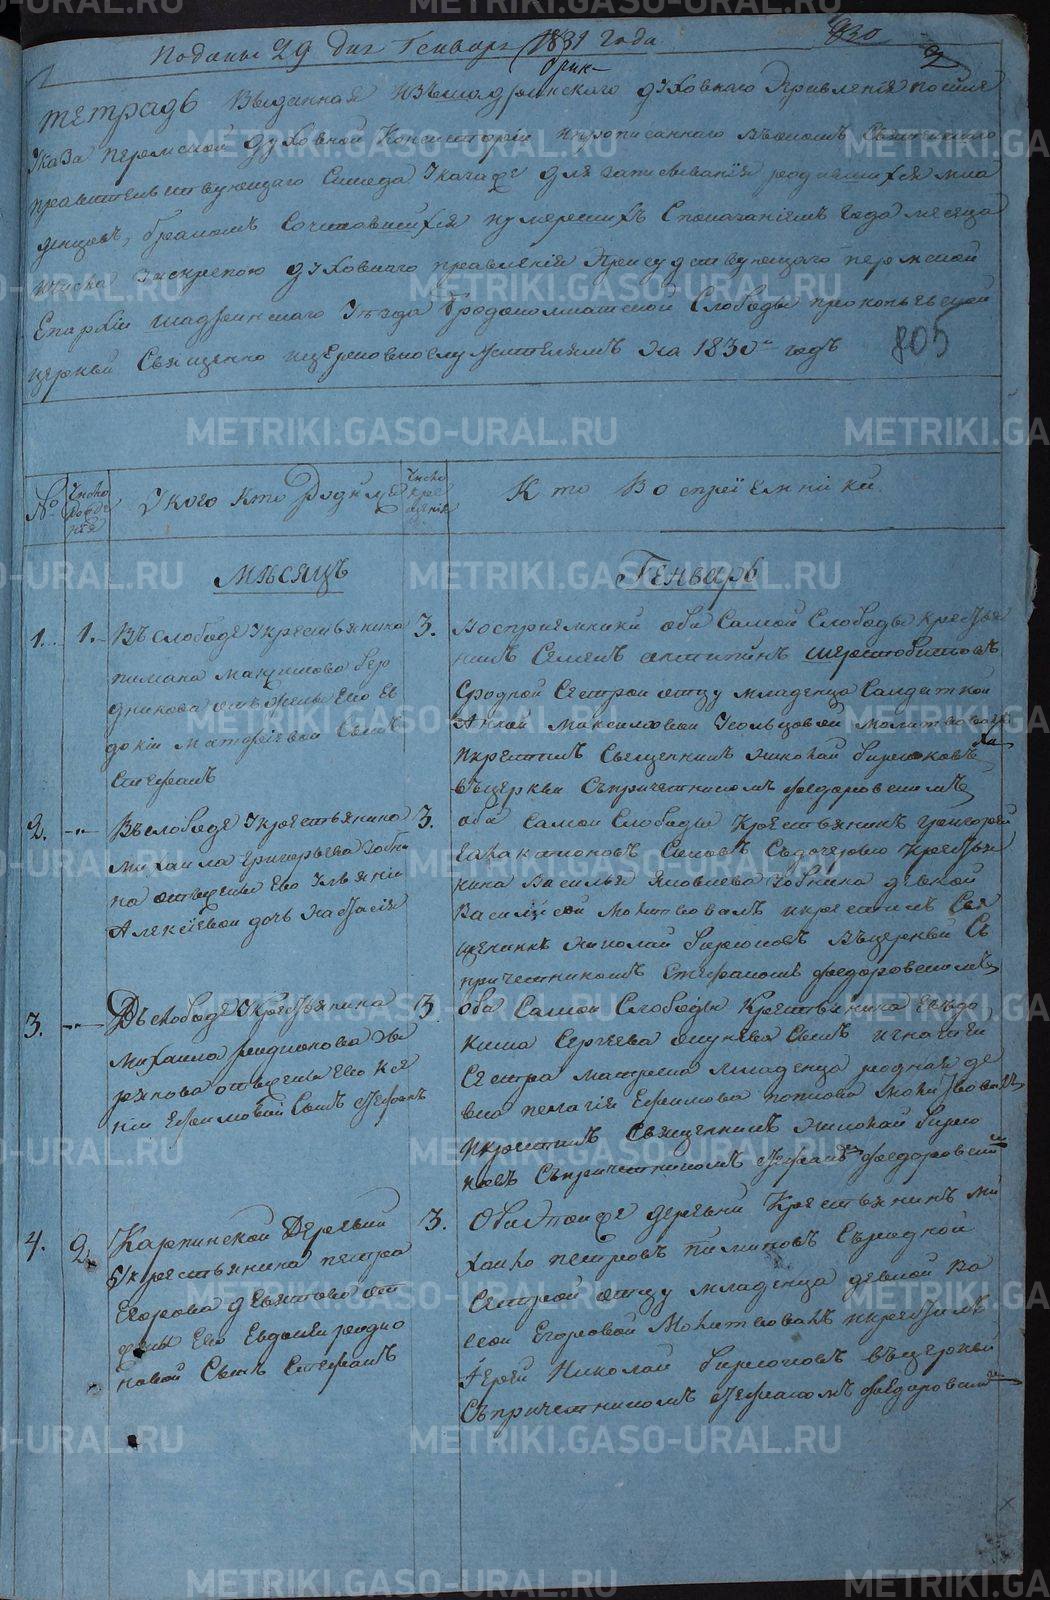 Поданы 29 дня Генваря 1831 года
830
2
Ориг
тетрадь Выданная изъ Шадринского духовнаго Правленія после
Указа пермской духовной Консисторіи и прописаннаго въ ономъ Святейшаго
правительствующаго Синода Указа же для записыванія родившихся мла
денцовъ, бракомъ Сочетавшихся и умершихъ Спозачаніемъ года месяца
и числа заскрепою духовнаго правленія Присудствующаго пермской
Епархіи Шадринскаго Уезда Бродокалматской Слободы прокопьевской
церкви Священно и церковнослужителямъ на 1830й годъ
805
№ Число рожде нія У кого Кто Родился Число кре щенія Кто Воспріемники
Месяцъ Генварь
1. 1. Въ слободе У крестьянина
пимана Максимова Бер
дникова отъ жены Ево Ев
докіи Матфіевой Сынъ
Стефанъ
3. Восприемники оба Самой Слободы Крестья
нинъ Семенъ Шерстобитовъ
Сродной Сестрой отцу младенца Салдаткой
Анной Максимовой Усольцовой Молитвовалъ
и крестилъ Священникъ Николай Бирюковъ
въ церкви Съ причетникомъ Федоровскимъ
2. -"- Въ слободе У крестьянина
Михаила Григорьева Зобни
на отъ жены Ево Ульяніи
Алексіевой дочь Настасія
3. оба Самой Слободы Крестьянинъ Григорей
Сыновъ Съ дочерью Крестья
нина Василья Яковлева Зобнина девкой
Василисой Молитвовалъ и крестилъ Свя
щенникъ Николай Бирюковъ въ церкви Съ
причетникомъ Стефаномъ Федоровскимъ
3. -"- Въ слободе У крестьянина
Михаила родионова
отъ жены Ево Ксе
ніи Ефимовой Сынъ Стефанъ
3 оба Самой Слободы Крестьянина Евдо
кима Сергеева Сынъ игнатій
Сестра матери младенца родная де
вка пелагія Ефимова попкова Молитвовалъ
и крестилъ Священникъ Николай Бирю
ковъ Съ причетникомъ Стефаномъ Федоровски
4. 2. Карпинской Деревни
У крестьянина петра
Егорова девятова от
жены Ево Евдокеи родио
новой Сынъ Стефанъ
3. Оба Той же деревни Крестьянинъ Ми
хайло петровъ пиминовъ Съ родной
Сестрой отцу младенца девкой Ва
сеой Егоровой Молитвовалъ и крестилъ
Іерей Николай Бирюковъ въ церкви
Съ причетникомъ Стефаномъ Федоровским
METRIKI.GASO-URAL.RU